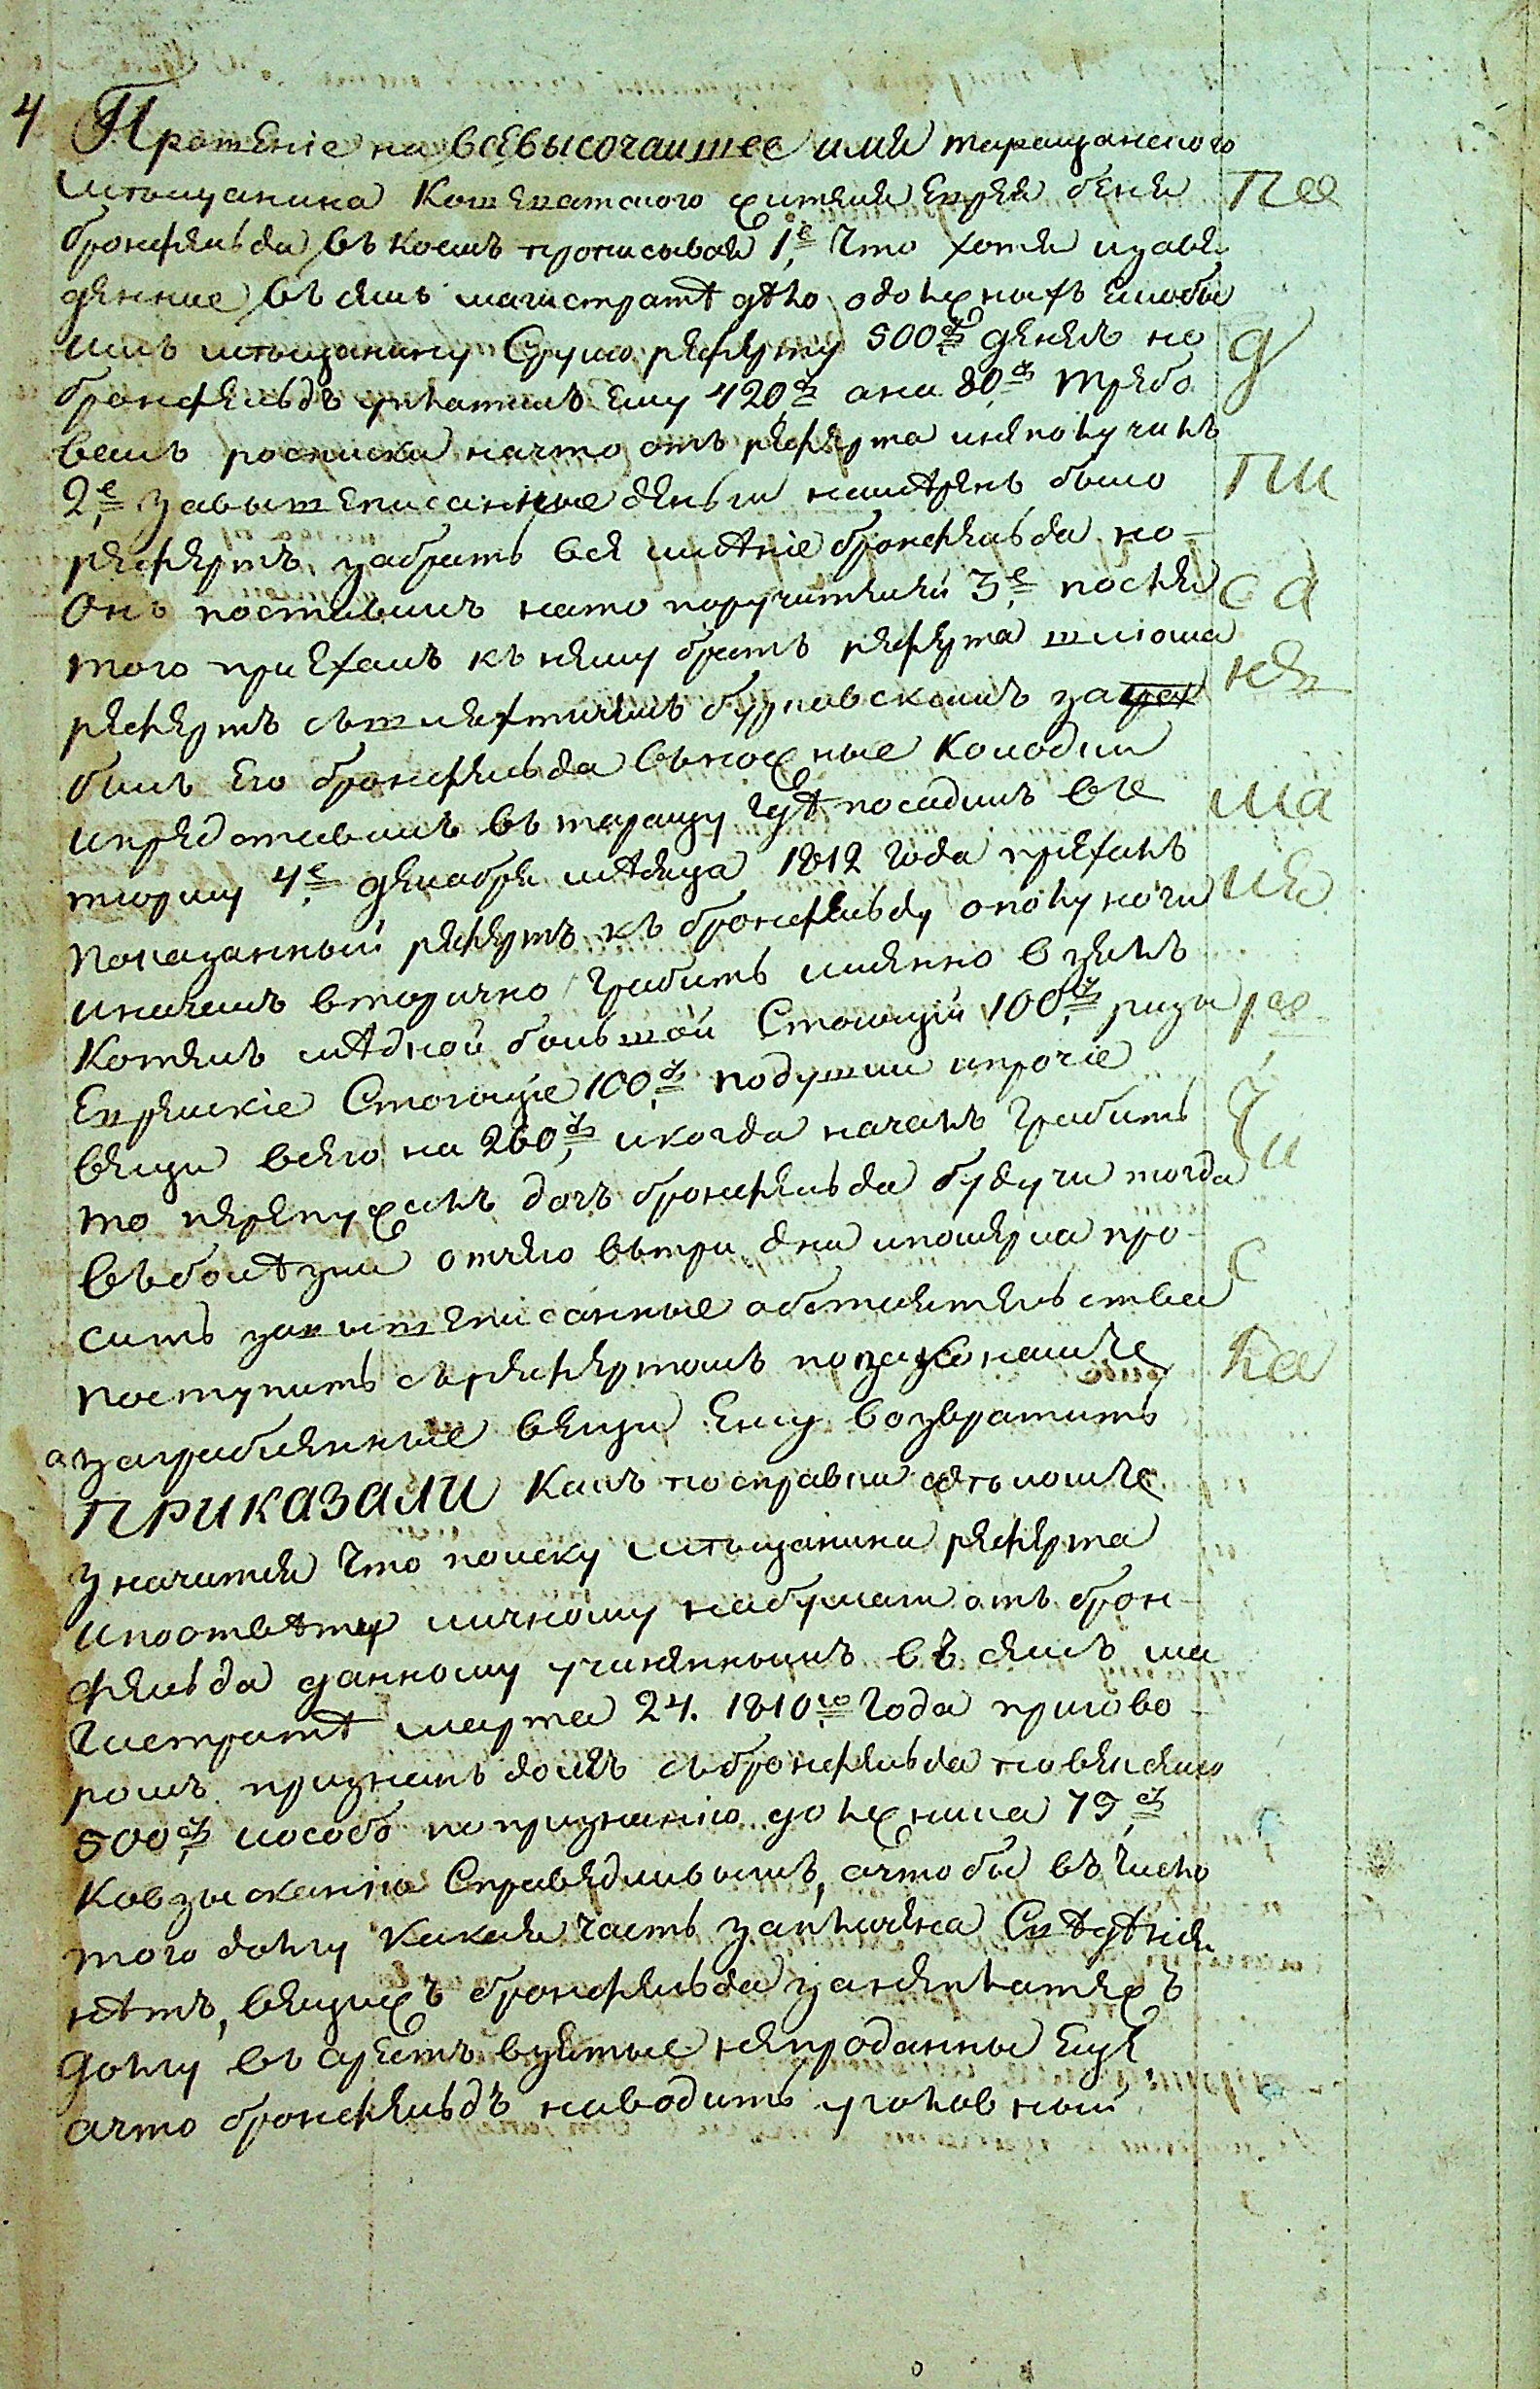 4 Прошеніе на всевысочаишее имя таращанского
мѣщанина Кошеватского жителя Еврея бени
бронфельда въ коемъ прописывая 1е, Что хотя изавѣ
денное въ семъ магистратѣ дѣло о должнахъ емобы
имъ мѣщанину Сруlю рефлрту 500 р денегъ но
бронфельдъ уплатилъ ему 420 р а на 80 р требо
валъ росписка на что отъ рефлрта и неполучилъ
2е, завышеписанные деньги намѣренъ было
рефлртъ забрать все имѣніе бронфельда но-
Онъ поставилъ на то поручителей 3е, после
того приехалъ къ нему братъ рефлрта шліома
рефлртъ съ шляхтичемъ бурковскимъ за
билъ Его бронфельда въ ножные Колодки
и представилъ въ таращу гдѣ посадилъ въ
тюрму 4е, декабря мѣсяца 1812 года приехалъ
показанный рефлртъ къ бронфельду о полу ночи
и началъ вторично грабить именно взялъ
Котелъ мѣдной большой Стоющій 100 р ризы
Еврейскіе Стоющіе 100 р подушки и прочіе
вещи всего на 260 р и когда началъ грабить
то перепужалъ дочь бронфельда будучи тогда
въ болѣзни отчего въ три дни и померла про-
ситъ за вышеписанные обстоятельства
поступить съ рефлртомъ по законамъ
а заграбленные вещи Ему возвратить
ПРИКАЗАЛИ Какъ по справки
значится Что по иску мѣщанина рефлрта
и по отвѣту личному на бумаги отъ брон-
фельда данному учиненнымъ въ семъ ма
гистратѣ марта 24. 1810го года пригово-
ромъ признанъ долгъ съ бронфельда по векселю
500 р и особо по признанію должника 79 р
Ко взысканію Справедливымъ, а что бы въ число
того долгу какая часть заплачена Свѣдѣнія
нѣтъ, вещижъ бронфельда за неплатежъ
долгу въ арестъ взятые непроданны Еще
а что бронфельдъ наводитъ уголовный
пее
д
пи
са
нея
ма
ия
ре
чи
с
ка